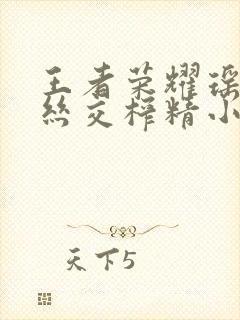 王者荣耀瑶
丝交榨精小
天下5